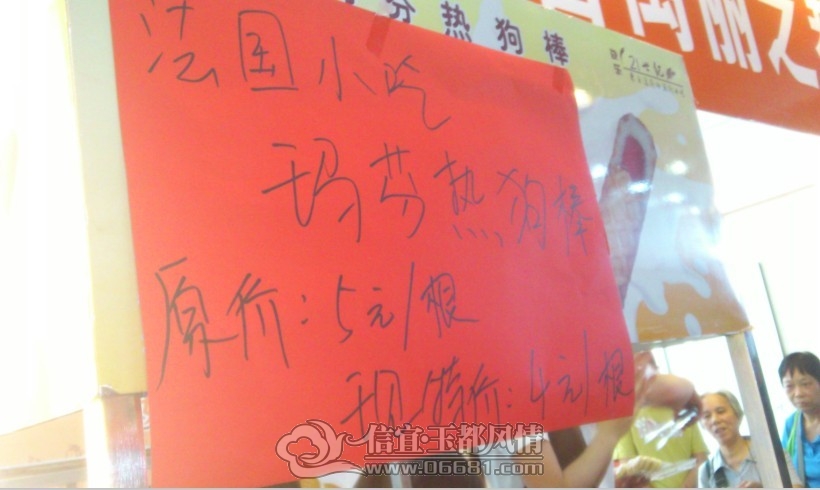 芬热狗棒
法国小吃
玛芬热狗棒
原价:5元/根
现特价:4元/根
信宜·玉都风情
www.06681.com